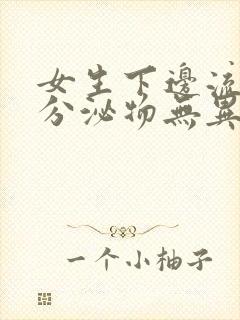 女生下邊流
分泌物無異
一个小柚子